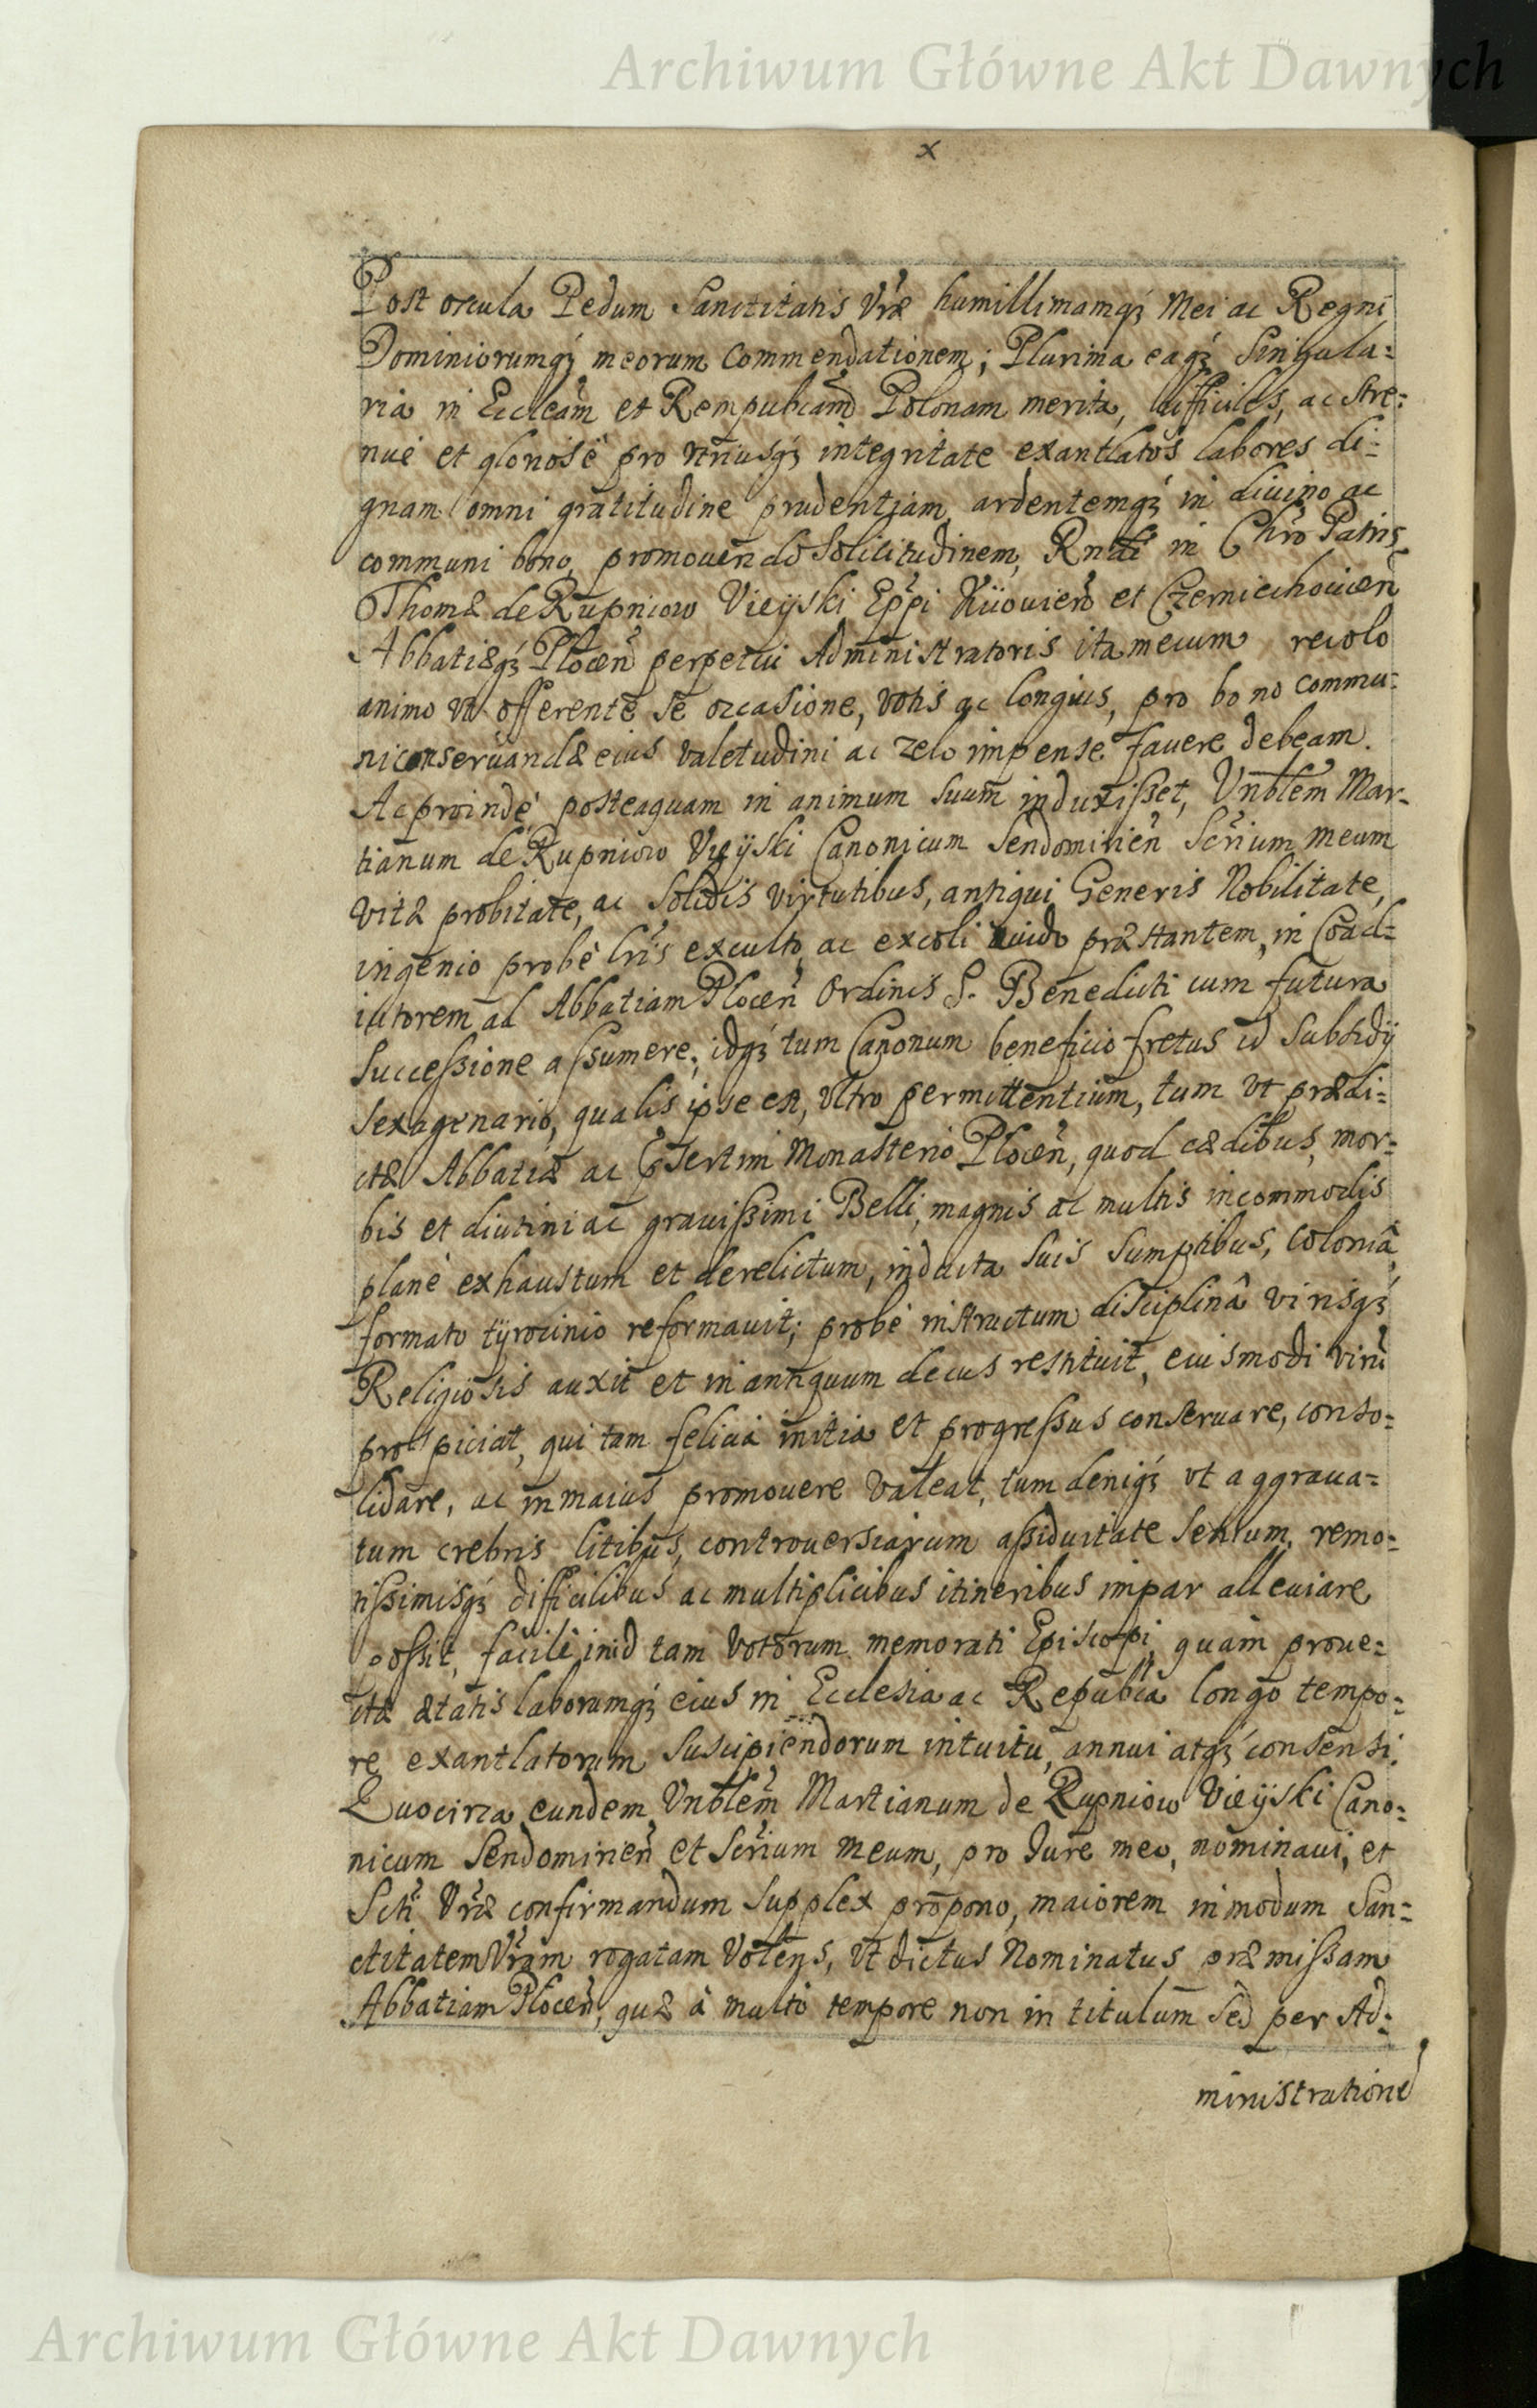 Archiwum Główne Akt Dawnych
x
Post oscula Pedum Sanctitatis Vræ humillimamq₃ Mei ac Regni
Dominiorumq₃ meorum Commendationem; Plurima eaq₃ Singula=
ria in Eccleam et Rempubcam Polonam merita, difficiles, ac stre:
nué et gloriosè pro vtriusq₃ integritate exantlatos labores di=
gnam omni gratitudine prudentiam, ardentemq₃ in diuino ac
communi bono, promouendo Solicitudinem, Rndi in Chro Patris
Thomæ de Rupniow Vieÿski Eppi Kÿouien et Czerniechouien
Abbatiæq₃ Plocen perpetui Administratoris ita mecum recolo
animo vt offerente se occasione, votis ac longius, pro bono commu=
ni conseruandæ eius valetudini ac zelo impense fauere debeam.
Ac proinde posteaquam in animum suum induxißet, Vnblem Mar=
tianum de Rupniow Vieÿski Canonicum Sendomirien Scrium meum
vitæ probitate, ac solidis virtutibus, antiqui Generis Nobilitate,
ingenio probè lris exculto, ac excoli auido præstantem, in Coad=
iutorem ad Abbatiam Plocen Ordinis S. Benedicti cum futura
Succeßione aßumere; idq₃ tum Canonum beneficio fretus id Subsidÿ
Sexagenario, qualis ipse est, vltro permittentium, tum vt prædi=
ctæ Abbatiæ ac psertim Monasterio Plocen, quod cædibus, mor=
bis et diutini ac grauißimi Belli, magnis ac multis incommodis
planè exhaustum et derelictum, inducta suis sumptibus, Coloniâ,
formato tÿrocinio reformauit; probè instructum disciplinâ virisq₃
Religiosis auxit et in antiquum decus restituit, eiusmodi viri
prospiciat, qui tam felicia initia et progreßus conseruare, conso=
lidare, ac in maius promouere valeat, tum deniq₃ vt aggraua=
tum crebris litibus, controuersiarum aßiduitate Senium, remo=
tißimisq₃ difficilibus ac multiplicibus itineribus impar alleuiare
poßit, facilè in id tam votorum memorati Episcopi, quàm proue=
ctæ ætatis laborumq₃ eius in Ecclesia ac Repubca longo tempo=
re exantlatorum, suscipiendorum intuitu, annui atq₃ consensi.
Quocirca eundem Vnblem Martianum de Rupniow Vieÿski Cano=
nicum Sendomirien et Scrium meum, pro Iure meo, nominaui, et
Scti Vræ confirmandum supplex propono, maiorem in modum San=
ctitatem Vram rogatam volens, vt dictus Nominatus præmißam
Abbatiam Plocen, quæ à multo tempore non in titulum sed per Ad=
ministratione
Archiwum Główne Akt Dawnych